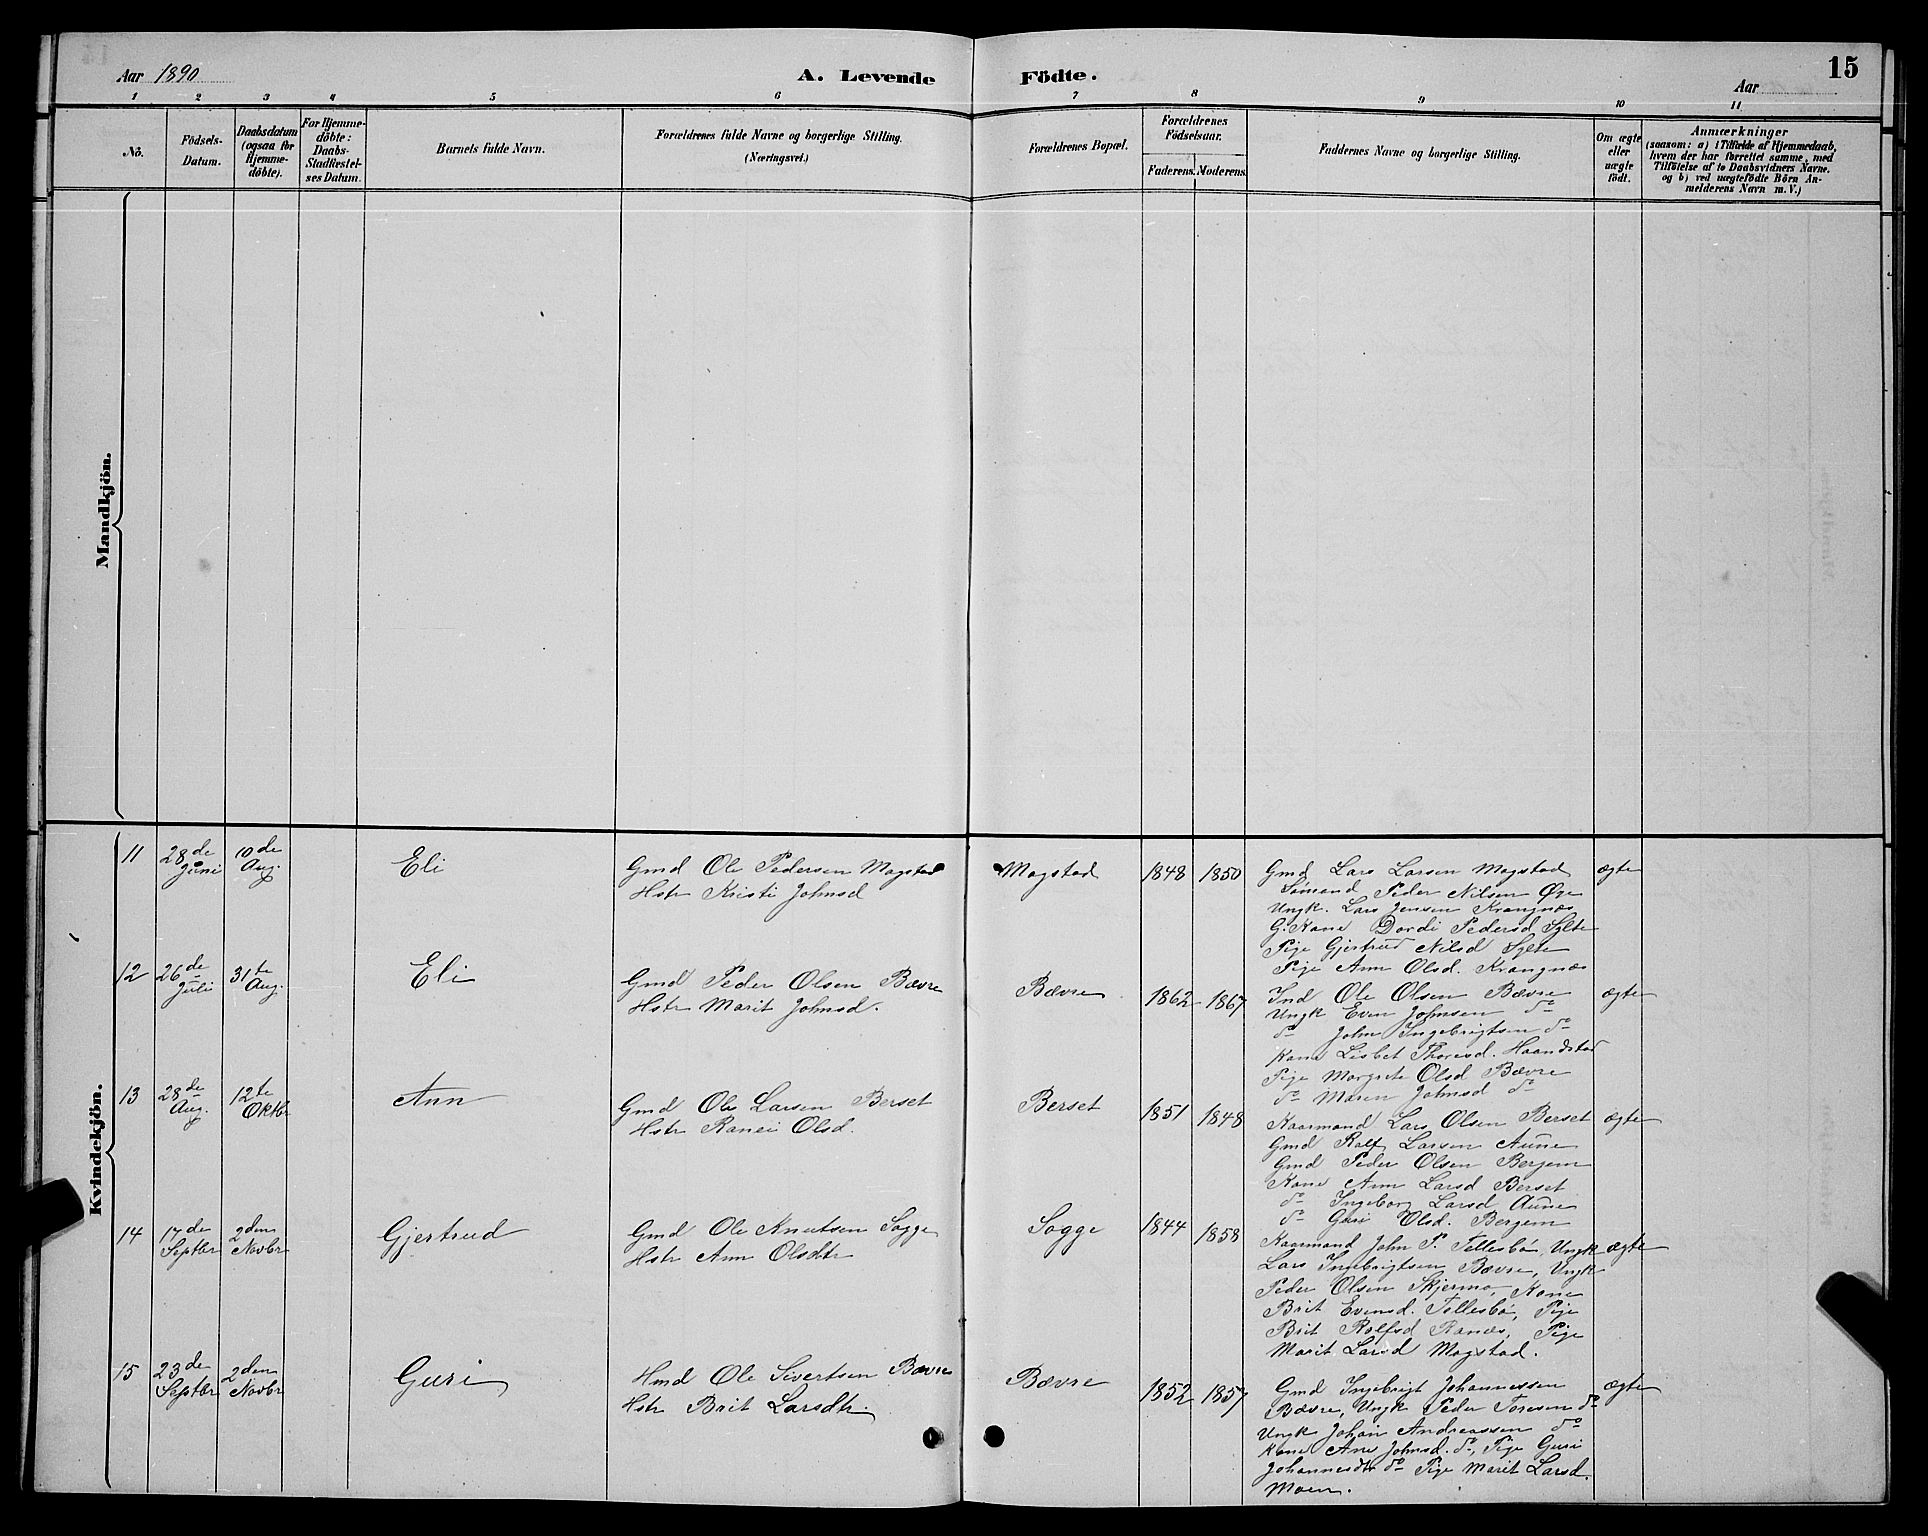 Aar 1890
A. Levende Födte.
Aar
15
1 2 3 4 5 6 7 8 9 10 11
No.
Födsels-
Datum.
Daabsdatum
(ogsaa for
Hjemme-
döbte).
For Hjemme-
döbte:
Daabs-
Stadfestel-
ses Datum.
Barnets fulde Navn.
Forældrenes fulde Navne og borgerlige Stilling.
(Næringsvei.)
Forældrenes Bopæl.
Forældrenes
Födselsaar.
Faderens. Moderens.
Faddernes Navne og borgerlige Stilling.
Om ægte
eller
uægte
födt.
Anmærkninger
(saasom: a) i Tilfælde af Hjemmedaab,
hvem der har forrettet samme, med
Tilföielse af to Daabsvidners Navne.
og b) ved uægtefödte Börn An-
melderens Navn m. V.)
Mandkjön.
Kvindekjön.
11
28de
Juni
10de
Aug.
Eli
Gmd Ole Pedersen Magstad
Hstr Kristi Johnsd
Magstad
1848 1850
Gmd Lars Larsen Magstad
Sömand Peder Nilsen Øye
Ungk. Lars Jensen Krangnæs
G. Kone Dordi Pedersd Sylte
Pige Gjertrud Nilsd Sylte
Pige Ann Olsd. Krangnæs
ægte
12
26de
Juli
31te
Aug.
Eli
Gmd Peder Olsen Bævre
Hstr Marit Johnsd.
Bævre
1862 1867
Ind Ole Olsen Bævre
Ungk Even Johnsen do
do John Ingebrigtsen do
Kone Lisbet Thoresd. Haandstad
Pige Margrete Olsd Bævre
do Maren Johnsd do
ægte
13
28de
Aug.
12te
Oktbr
Ann
Gmd Ole Larsen Berset
Hstr Ranei Olsd.
Berset
1851 1848
Kaarmand Lars Olsen Berset
Gmd Rolf Larsen Aune
Gmd Peder Olsen Bergem
Kone Ann Larsd Berset
do Ingeborg Larsd Aune
do Guri Olsd. Bergem
ægte
14
17de
Septbr
2den
Novbr
Gjertrud
Gmd Ole Knutsen Sogge
Hstr Ann Olsdtr
Sogge
1844 1858
Kaarmand John P. Tellesbö, Ungk
Lars Ingebrigtsen Bævre, Ungk
Peder Olsen Skjermo, Kone
Brit Evensd. Tellesbö, Pige
Brit Rolfsd Ranæs, Pige
Marit Larsd Magstad.
ægte
15
23de
Septbr
2den
Novbr
Guri
Hmd Ole Sivertsen Bævre
Hstr Brit Larsdtr.
Bævre
1852 1857
Gmd Ingebrigt Johannessen
Bævre, Ungk Peder Toresen do
Ungk Johan Andreassen do
Kone Ane Johnsd. do, Pige Guri
Johannesdtr do Pige Marit Larsd.
Moen.
ægte